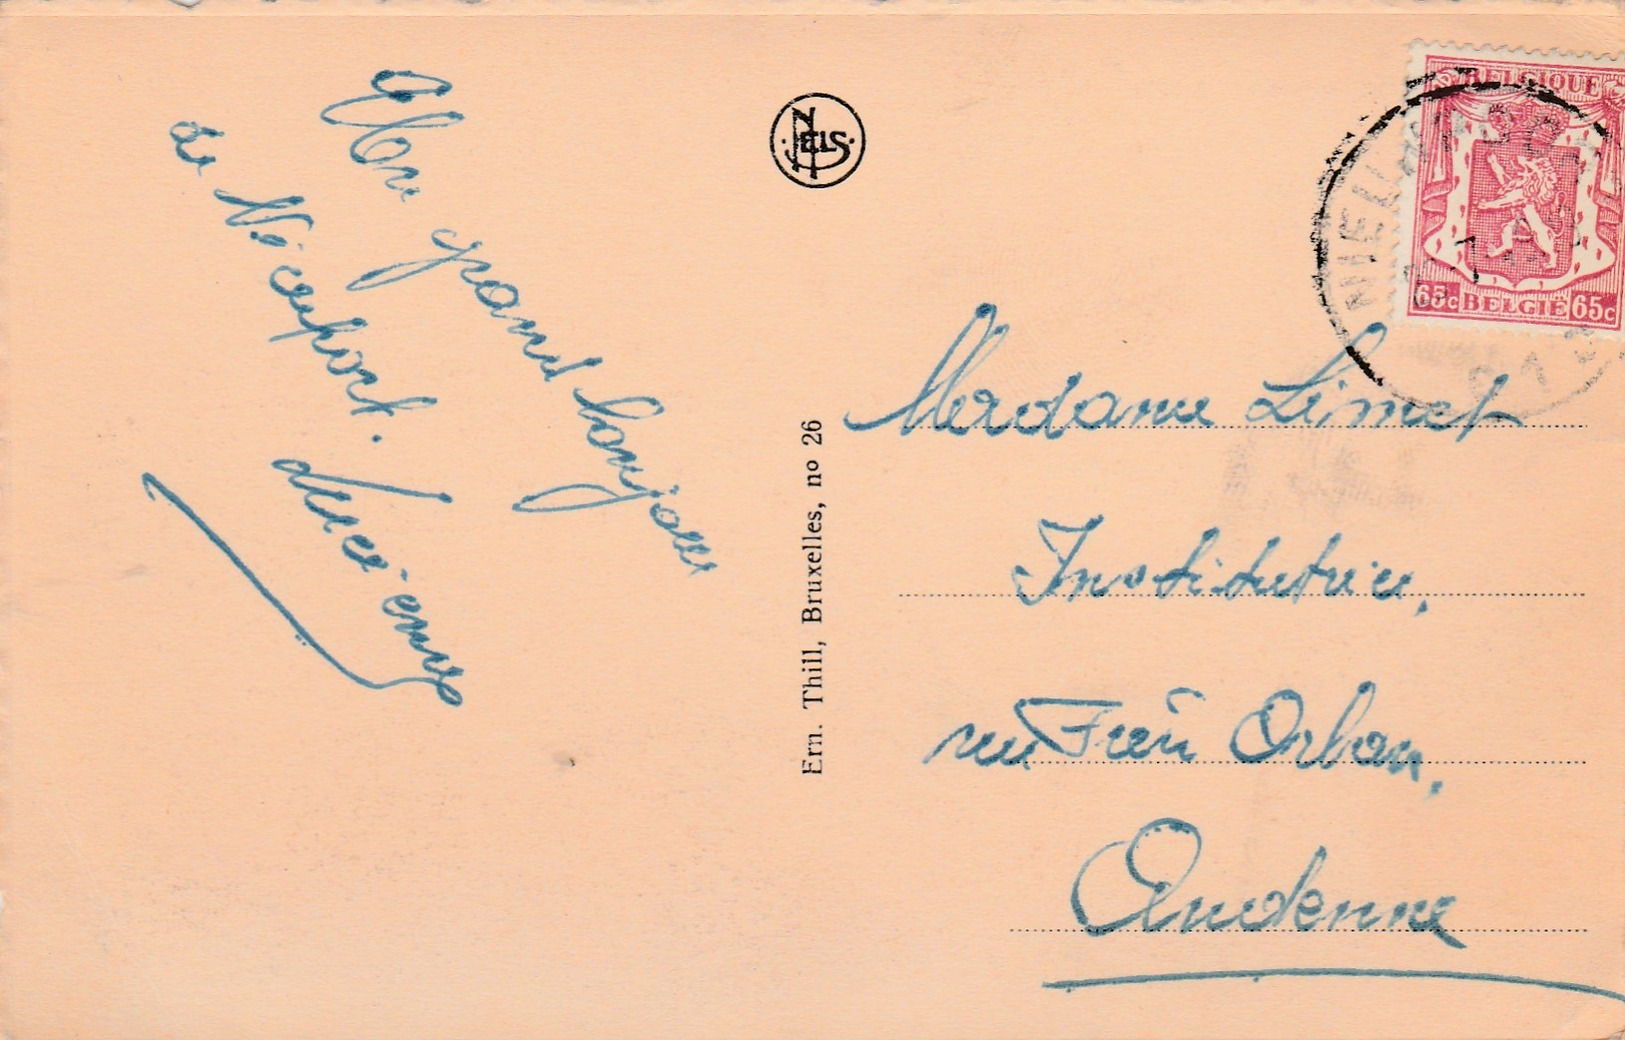 Mon grand bonjour
de Nieuport.
Lucienne
NELS
Ern. Thill, Bruxelles, no 26
BELGIQUE
65c BELGIE 65c
Madame Limet
Institutrice,
rue Frère Orban,
Andenne